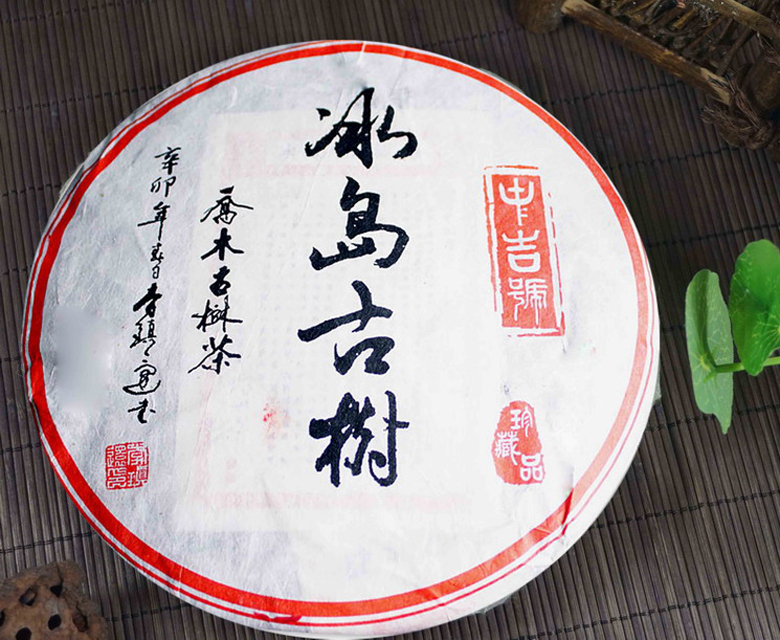 中吉號
珍藏品
冰島古樹
喬木古樹茶
辛卯年春